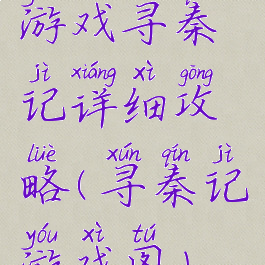 游戏寻秦
jì xiáng xì gōng
记详细攻
lüè xún qín jì
略(寻秦记
yóu xì tú
游戏图)